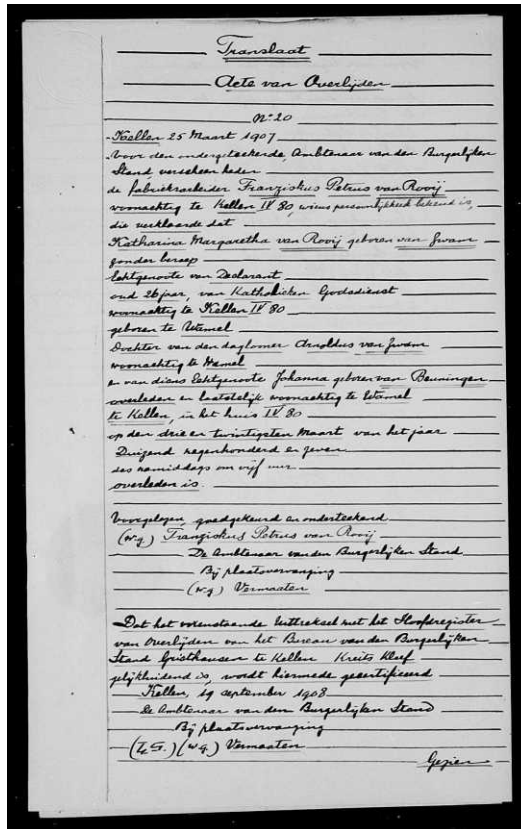 Translaat
Acte van Overlijden
No. 20
Kellen 25 Maart 1907
Voor den ondergeteekende, Ambtenaar van den Burgerlyken
Stand verscheen heden
de fabrieksarbeider Franziskus Petrus van Rooij
woonachtig te Kellen IV 80, wiens persoonlijkheid bekend is,
die verklaarde dat
Katharina Margaretha van Rooij geboren van Zwam
zonder beroep
Echtgenoote van Declarant
oud 26 jaar, van Katholieken Godsdienst
woonachtig te Kellen IV 80
geboren te Wamel
Dochter van den daglooner Arnoldus van Zwam
woonachtig te Wamel
en van diens Echtgenoote Johanna geboren van Beuningen
overleden en laatstelijk woonachtig te Wamel
te Kellen, in het huis IV 80
op den drie en twintigsten Maart van het jaar
Duizend negenhonderd en zeven
des namiddags om vijf uur
overleden is.
Voorgelezen goedgekeurd en onderteekend
(w.g.) Franziskus Petrus van Rooij
De Ambtenaar van den Burgerlijken Stand
Bij plaatsvervanging
(w.g.) Vermaaten
Dat het vorenstaande Uittreksel met het Hoofdregister
van Overlijden van het Bureau van den Burgerlijken
Stand Griethausen te Kellen Kreits Kleef
gelijkluidend is, wordt hiermede gecertificeerd
Kellen, 19 september 1908
De Ambtenaar van den Burgerlijken Stand
Bij plaatsvervanging
(L.S.) (w.g.) Vermaaten
Gezien